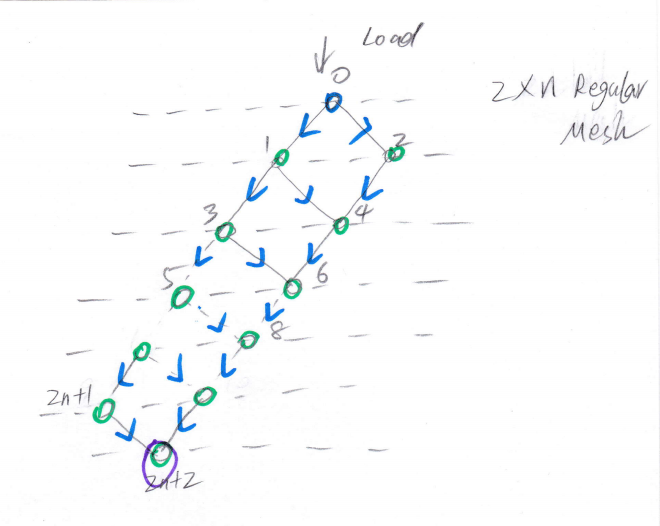 Load
0
2 x n Regular
Mesh
1
2
3
4
5
6
8
2n+1
2n+2